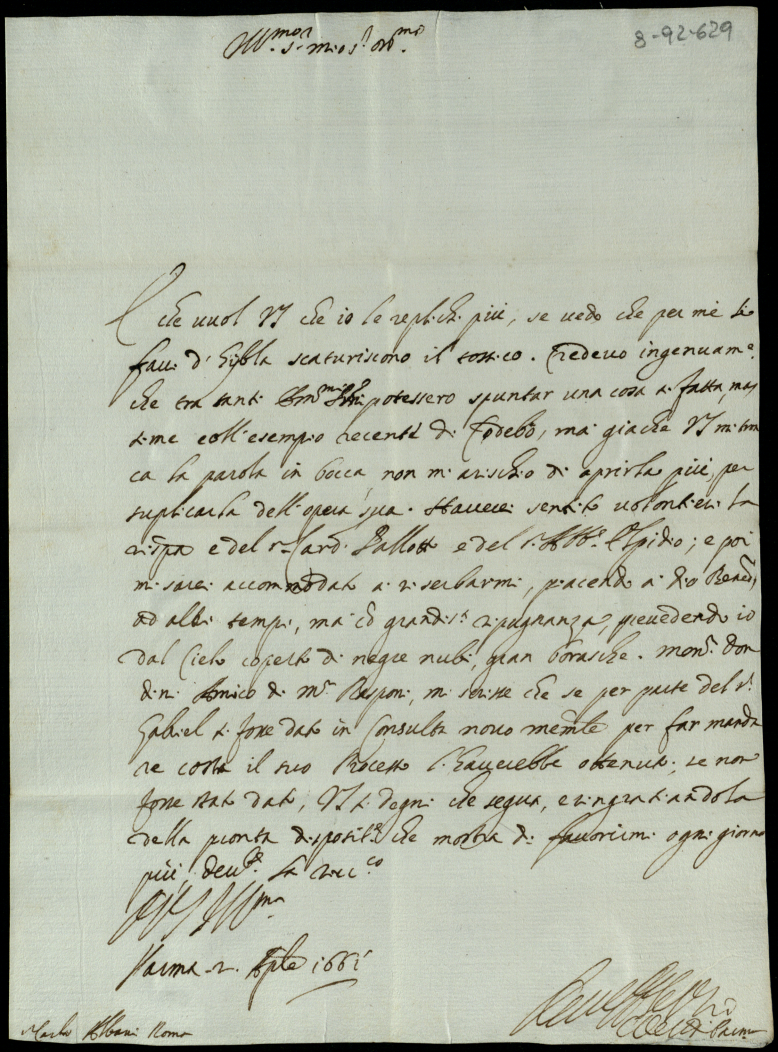 8-92-629
Ill.mo S.r mio s.r oss.mo
E che vuol VS che io le replichi più, se vedo che per me li
favi d'Hybla scaturiscono il tossico. Credevo ingenuam.e
che tra tanti potessero spuntar una cosa sì fatta, mas
sime coll'esempio recente di Codebò, ma giache VS mi tron
ca la parola in bocca, non m'arischio di aprirla più, per
suplicarla dell'opera sua. Haverei sentito volontieri la
risp.a e del S.r Card. Pallotta e del S. Abb.e Elpidio; e poi
mi sarei accommodato a riserbarmi, piacendo a dio
ad altri tempi, ma cō grandis.a ripugnanza, prevedendo io
dal Cielo coperto di negre nubi, gran borasche. Mons.r Bon
dini Amico di M.r Rasponi, mi scrisse che se per parte del S.r
Gabriel si fosse dato in Consulta novo memle per far manda
re costà il suo Processo l'haverebbe ottenuto; se non
fosse stato dato, VS si degni che segua, e ringratiandola
della pronta dispositi.e che mostra di favorirmi ogni giorno
più, la riverisco
Di VS Ill.ma
Parma 2. Aple 1661
Carlo Albani Roma